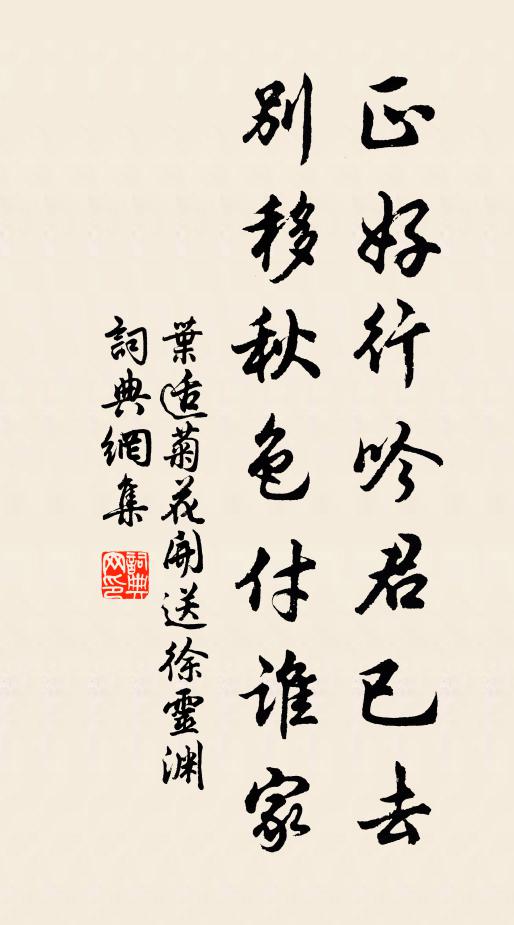 正好行吟君已去
別移秋色付誰家
葉适菊花開送徐靈渊
詞典網集
詞典網印